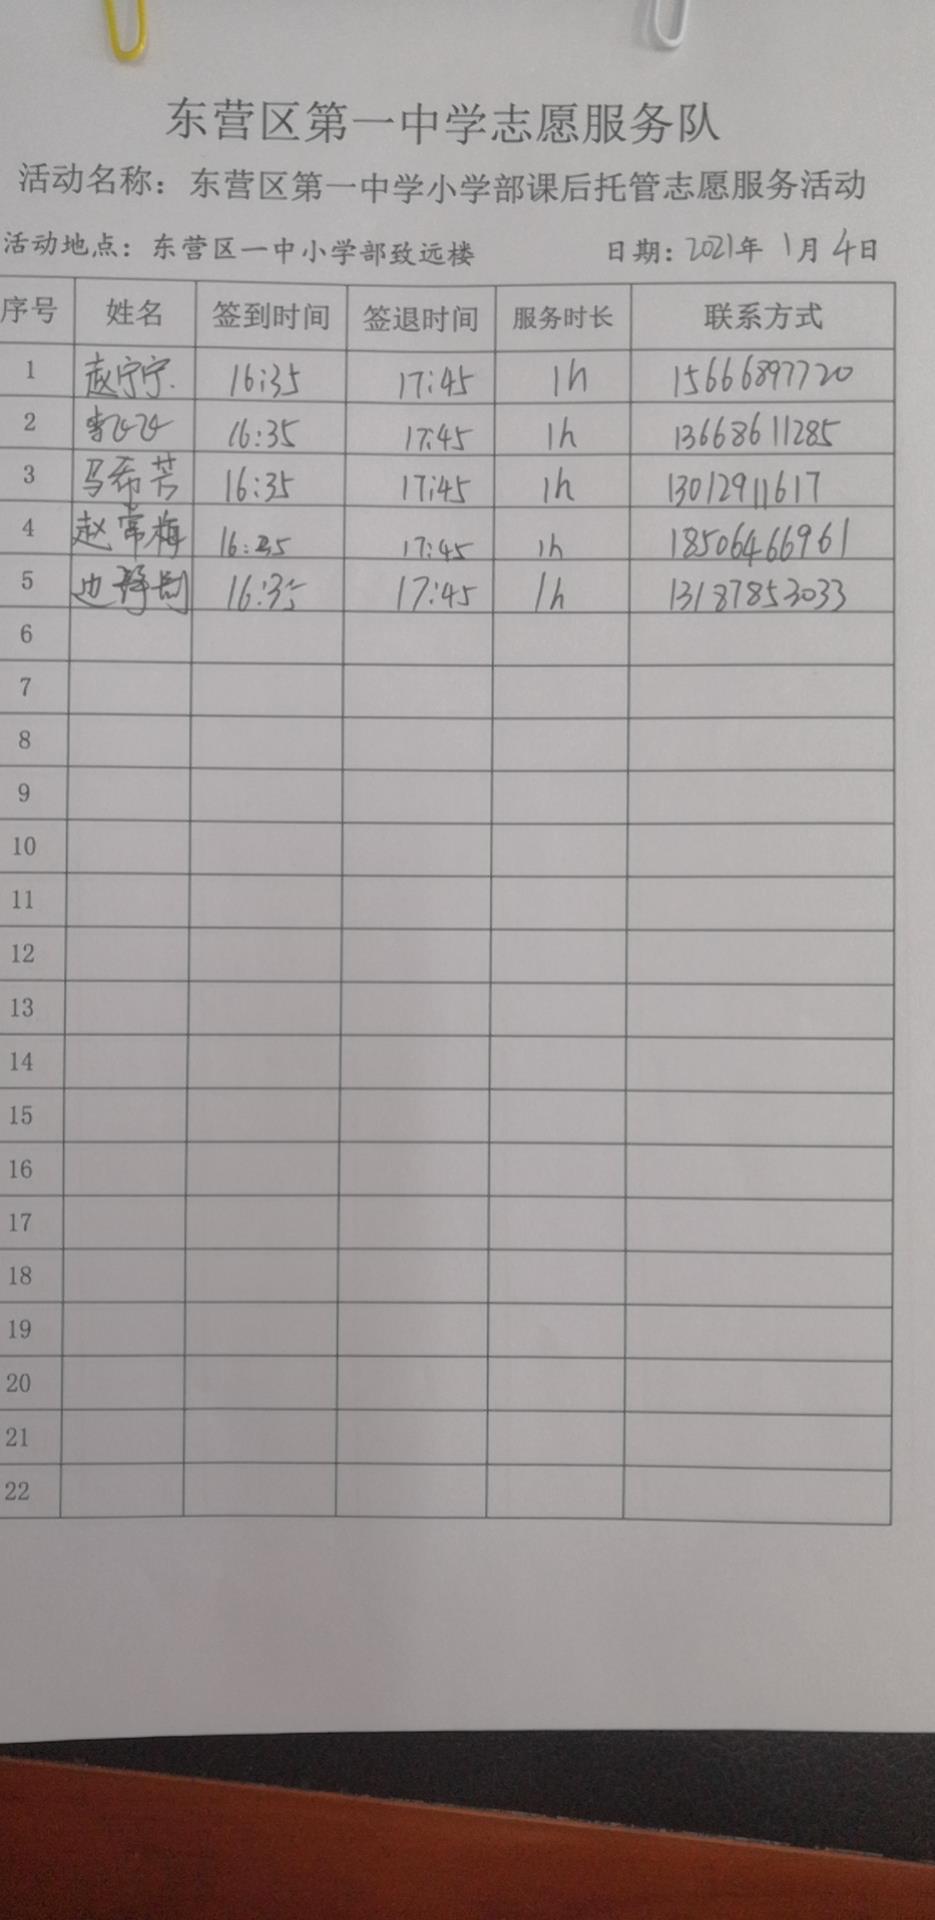 东营区第一中学志愿服务队
活动名称：东营区第一中学小学部课后托管志愿服务活动
活动地点：东营区一中小学部致远楼 日期：2021年 1月 4日
序号 姓名 签到时间 签退时间 服务时长 联系方式
1 赵宁宁 16:35 17:45 1h 15666897720
2 李 16:35 17:45 1h 13668611285
3 马希芳 16:35 17:45 1h 13012911617
4 赵常梅 16:35 17:45 1h 18506466961
5 边 16:35 17:45 1h 13187853033
6
7
8
9
10
11
12
13
14
15
16
17
18
19
20
21
22